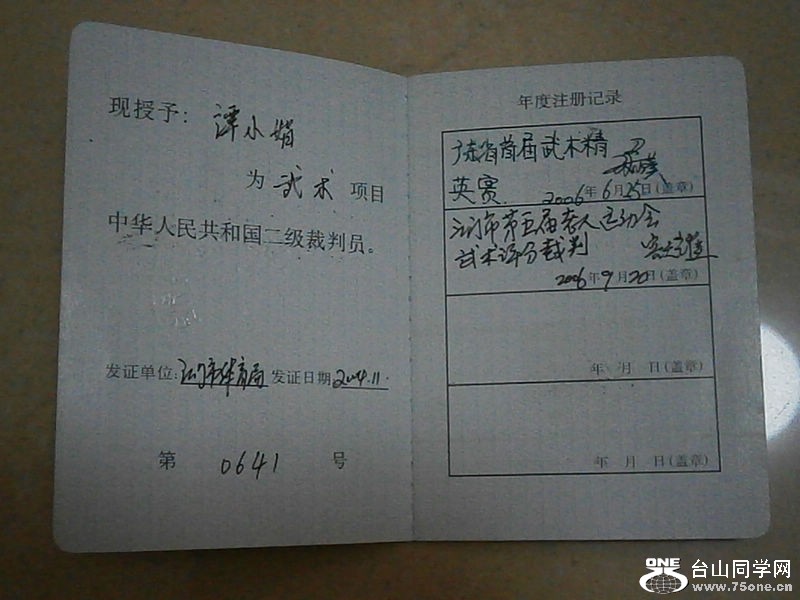 现授予：谭小娟
为 武术 项目
中华人民共和国二级裁判员。
发证单位：江门市体育局 发证日期 2004.11.
第 0641 号
年度注册记录
广东省首届武术精
英赛.
2006年6月25日（盖章）
江门市第五届老人运动会
武术评分裁判
2006年9月20日（盖章）
年 月 日（盖章）
年 月 日（盖章）
ONE 台山同学网
www.75one.cn